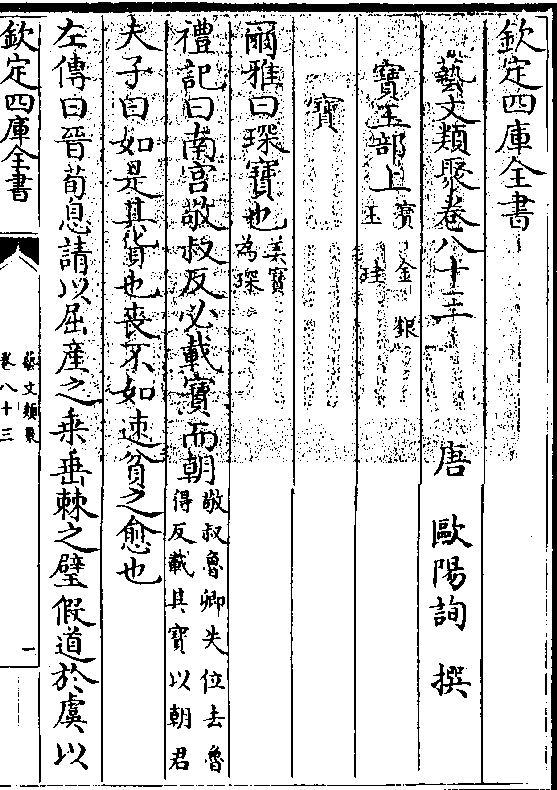 欽定四庫全書
藝文類聚卷八十三
唐 歐陽詢 撰
寶玉部上 寶 金 銀 玉 珪
寶
爾雅曰琛寶也美寶為琛
禮記曰南宫敬叔反必載寶而朝敬叔魯卿失位去魯得反載其寶以朝君
夫子曰如是其貨也喪不如速貧之愈也
左傳曰晉荀息請以屈産之乗垂棘之璧假道於虞以
欽定四庫全書
藝文類聚
卷八十三
一